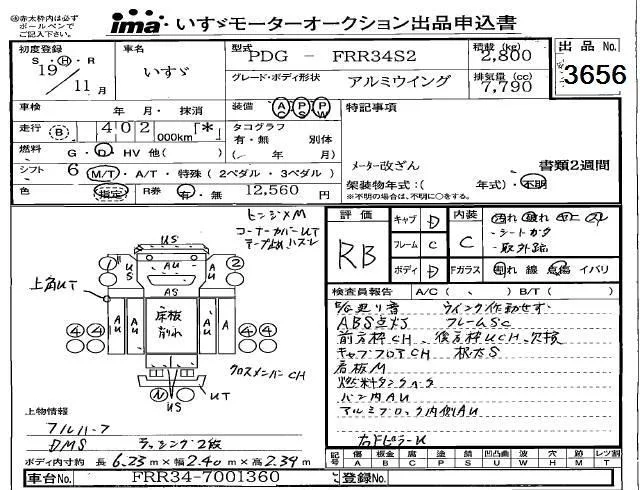 ◎赤太枠内は必ず
ボールペンで
ご記入下さい。
ima いすゞモーターオークション出品申込書
初度登録
S・H・R
19年
11月
車名
いすゞ
型式
PDG - FRR34S2
積載(kg)
2,800
グレード・ボディ形状
アルミウイング
排気量(cc)
7,790
出品No.
3656
車検 年・月・抹消
装備 AC PS PW
特記事項
走行 B 402,000km「*」
タコグラフ
有・無 別体
( ~ 年 月)
燃料 G・D・HV 他( )
メーター改ざん
書類2週間
シフト 6 M/T・A/T・特殊(2ペダル・3ペダル)
架装物年式:( 年式)・不明
※不明の場合は、不明に○をする。
色 指定
R券 有・無 12,560円
ヒンジXM
コーナーカバーUT
テープ止めハズレ
上角UT
US
AU
AS
床板
削れ
クロスメンバーCH
UT
US
評価
RB
キャブ D
フレーム C
ボディ D
内装
C
汚れ 破れ
・シートガタ
Fガラス 割れ 線 点傷 イバリ
検査員報告 A/C( ) B/T( )
ウイング作動せず
ABS点灯 フレームSC
前方枠CH、後方枠UCH、欠検
キャブフロアCH 根太S
肩板M
バン内AU
アルミブロック内側AU
右FピラーU
上物情報
フルハーフ
DMS ラッシング2段
ボディ内寸約 長 6.23m×幅2.40m×高2.39m
記号 傷 板金 腐 塗 錆 凹凸曲 波 穴 時 レツ割
A B C P S U W H M T
車台No. FRR34-7001360
登録No.